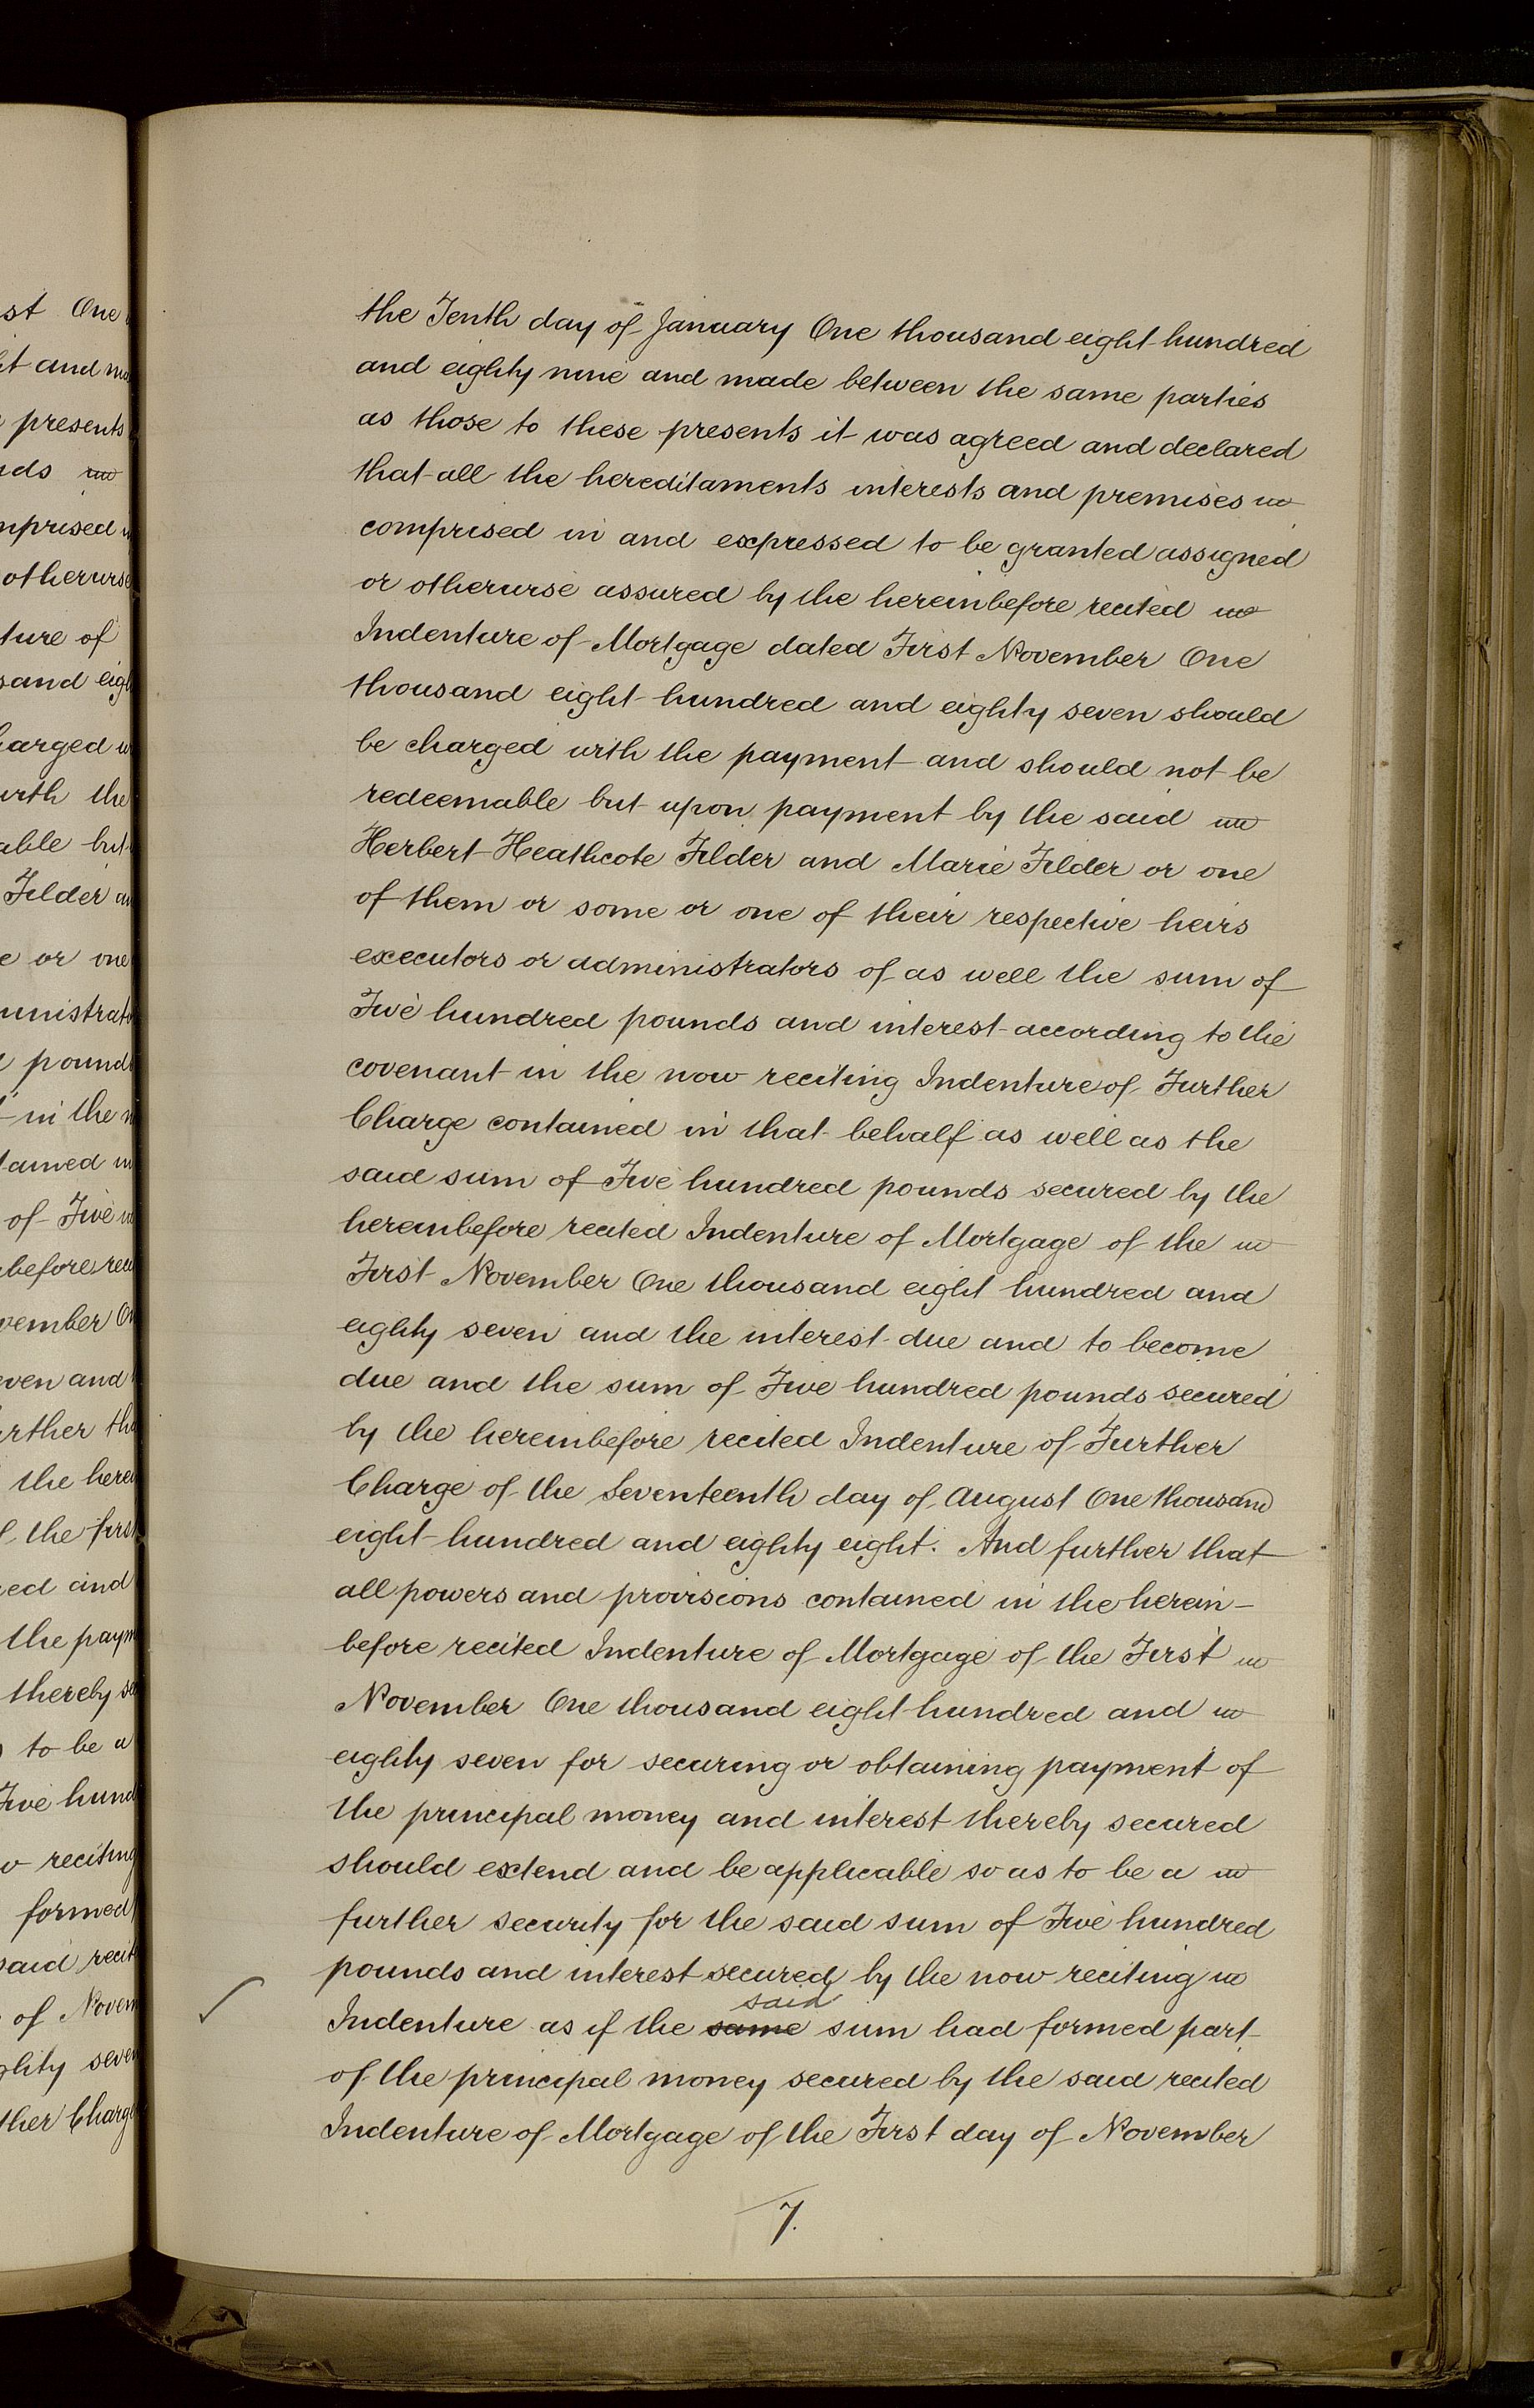 st One
t and ma
presents
ds
mprised
otherwise
ture of
sand eigh
harged
with the
able but
Filder an
e or one
ministrato
pounds
in the n
tained in
of Five
before reci
vember On
even and
urther tha
the herei
the first
red and
the paym
thereby se
to be a
Five hund
w reciting
formed
said recit
of Novem
ghty seven
ther Charge
the Tenth day of January One thousand eight hundred
and eighty nine and made between the same parties
as those to these presents it was agreed and declared
that all the hereditaments interests and premises
comprised in and expressed to be granted assigned
or otherwise assured by the hereinbefore recited
Indenture of Mortgage dated First November One
thousand eight hundred and eighty seven should
be charged with the payment and should not be
redeemable but upon payment by the said
Herbert Heathcote Filder and Marie Filder or one
of them or some or one of their respective heirs
executors or administrators of as well the sum of
Five hundred pounds and interest according to the
covenant in the now reciting Indenture of Further
Charge contained in that behalf as well as the
said sum of Five hundred pounds secured by the
hereinbefore recited Indenture of Mortgage of the
First November One thousand eight hundred and
eighty seven and the interest due and to become
due and the sum of Five hundred pounds secured
by the hereinbefore recited Indenture of Further
Charge of the Seventeenth day of August One thousand
eight hundred and eighty eight. And further that
all powers and provisions contained in the herein-
before recited Indenture of Mortgage of the First
November One thousand eight hundred and
eighty seven for securing or obtaining payment of
the principal money and interest thereby secured
should extend and be applicable so as to be a
further security for the said sum of Five hundred
pounds and interest secured by the now reciting
said
Indenture as if the same sum had formed part
of the principal money secured by the said recited
Indenture of Mortgage of the First day of November
7.